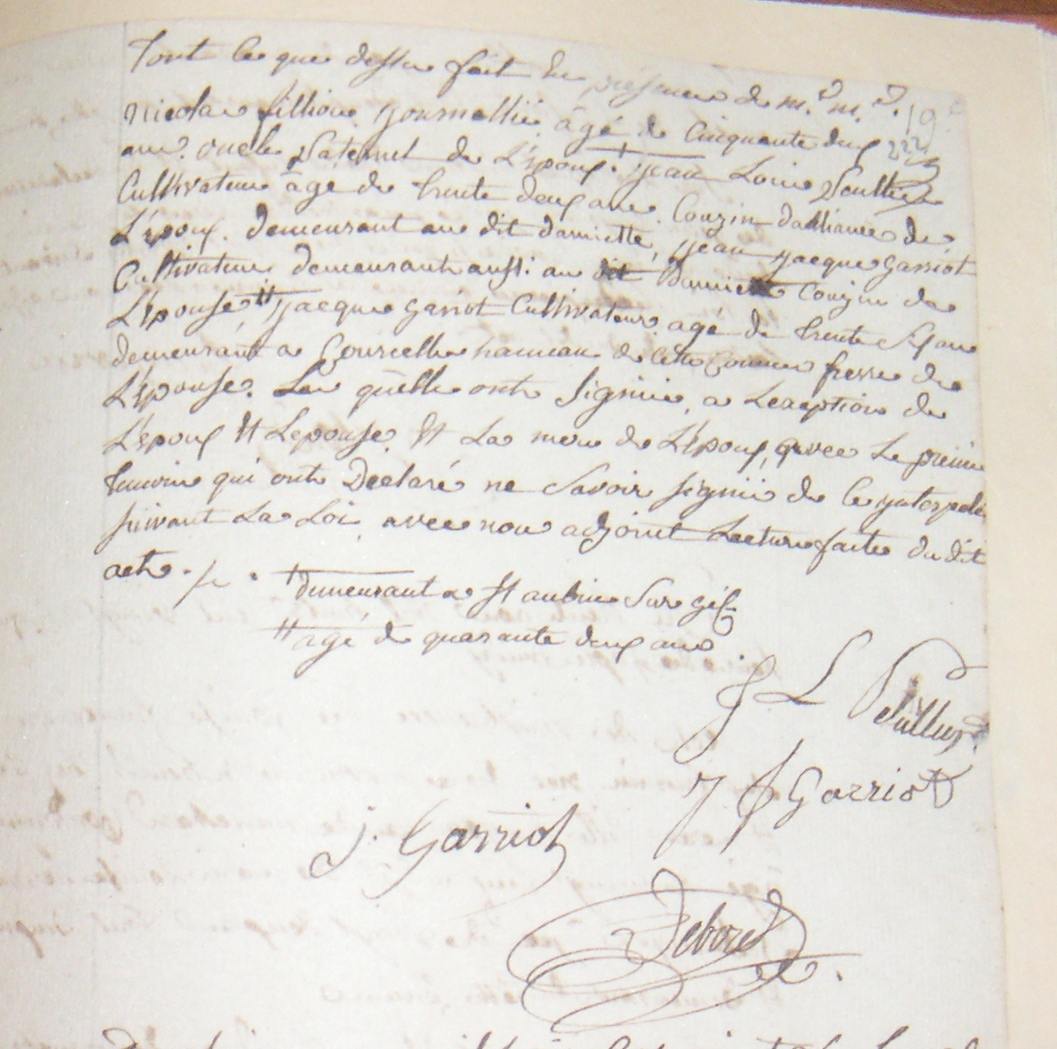 Tout ce que dessu fait en présence de m.rs m.rs 19e
Nicolas fillion journallié âgé de cinquante deux 222
ans oncle Paternel de L'Epoux † jean Louis Peultier
Cultivateur âgé de trente deux ans Couzin d'alliance de
L'Epoux. demeurant au dit damiette, jean jacque garriot
Cultivateur demeurant aussi au dit Damiette Couzin de
L'épouse †† jacque garriot Cultivateur agé de trente six ans
demeurant a Courcelle hameau de cette Commune frerre de
L'épouse. Les quelle onts Signié, a Lexception de
L'epoux Et Lepouse Et La mere de L'Epoux, avec Le premié
Temoin qui onts Declaré ne Savoir signié de ce interpelé
suivant La Loi avec nou adjoint Lecture faite du dit
acte.
† demeurant a St aubin Sur gif
†† agé de quarante deux ans
J L Peultier
J J Garriot
j. Garriot
Debord